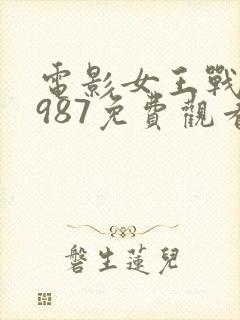 電影女王戰
987免費觀看
磐生蓮兒